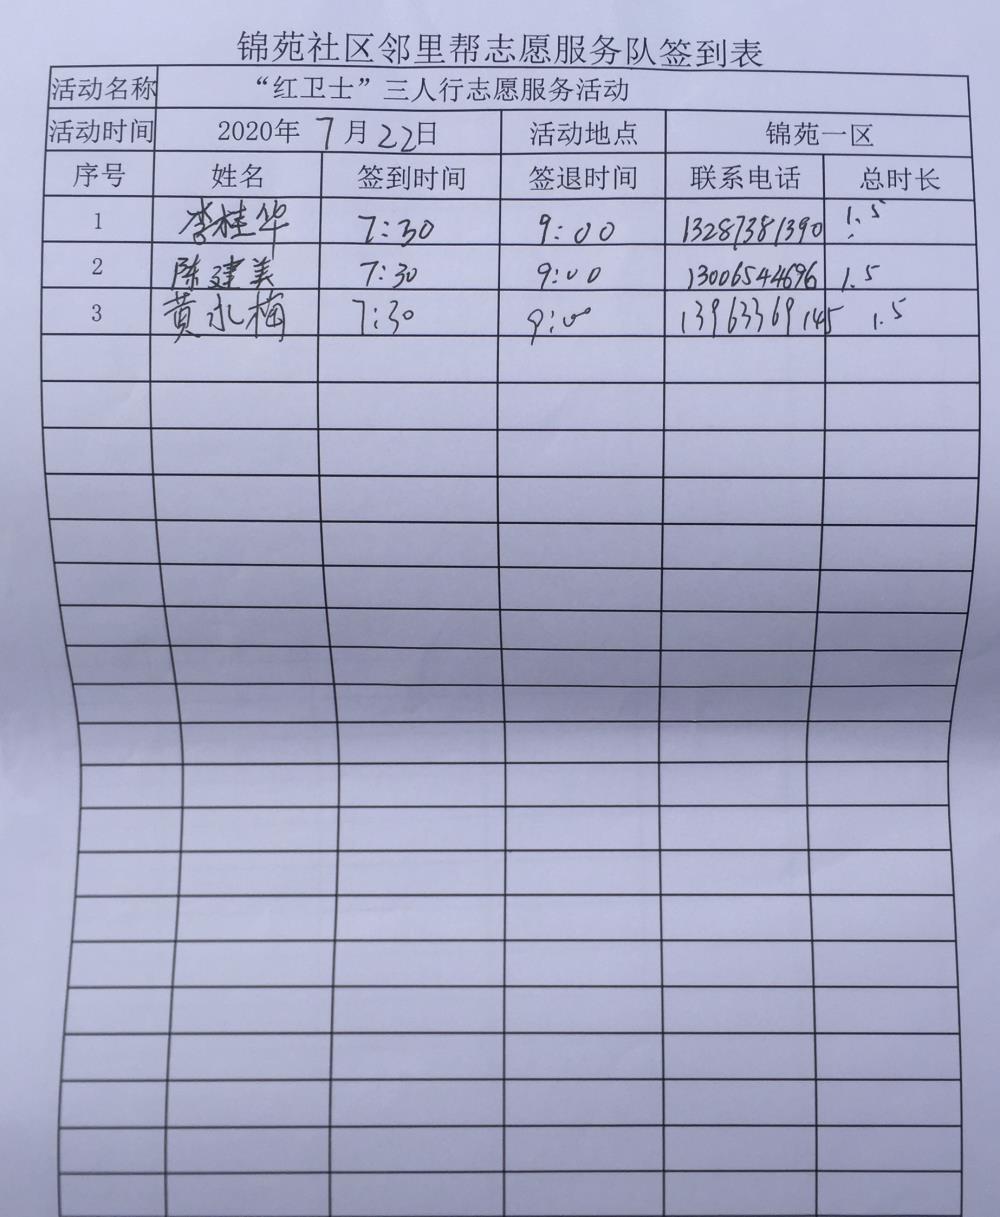 锦苑社区邻里帮志愿服务队签到表
活动名称 “红卫士”三人行志愿服务活动
活动时间 2020年 7月22日 活动地点 锦苑一区
序号 姓名 签到时间 签退时间 联系电话 总时长
1 李桂华 7:30 9:00 13287381390 1.5
2 陈建美 7:30 9:00 13006544696 1.5
3 黄永梅 7:30 9:00 13963369145 1.5